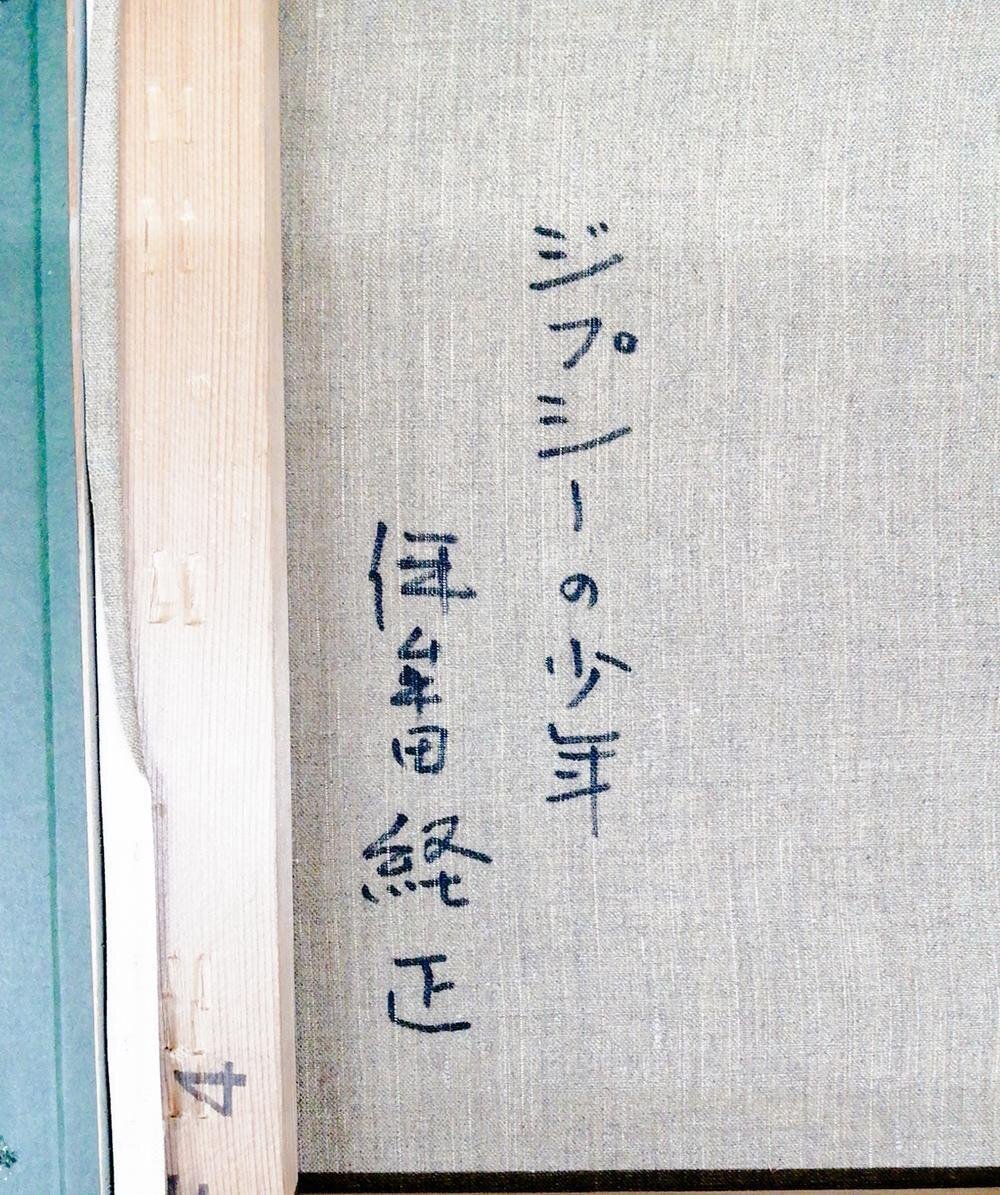 ジプシーの少年
伊牟田経正
4